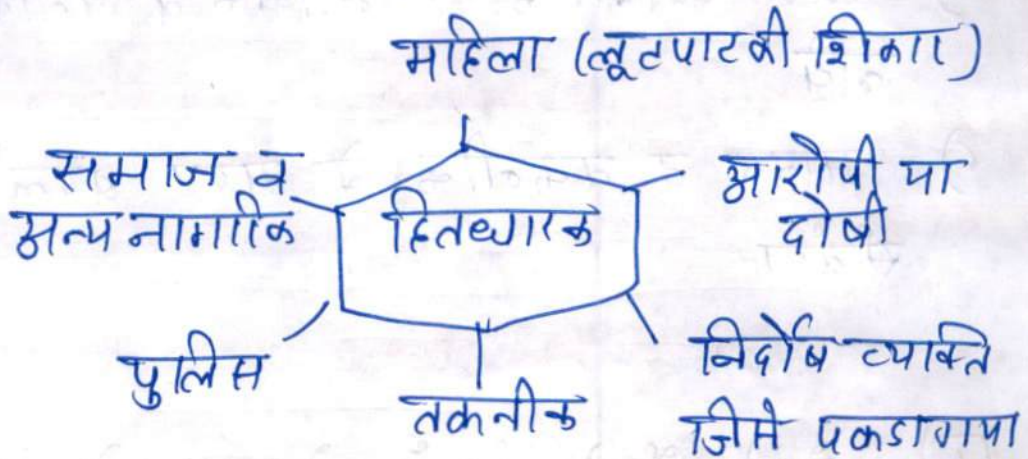 महिला (लूटपाट की शिकार)
समाज व
अन्य नागरिक
हितधारक
आरोपी या
दोषी
पुलिस
तकनीक
निर्दोष व्यक्ति
जिसे पकडा गया